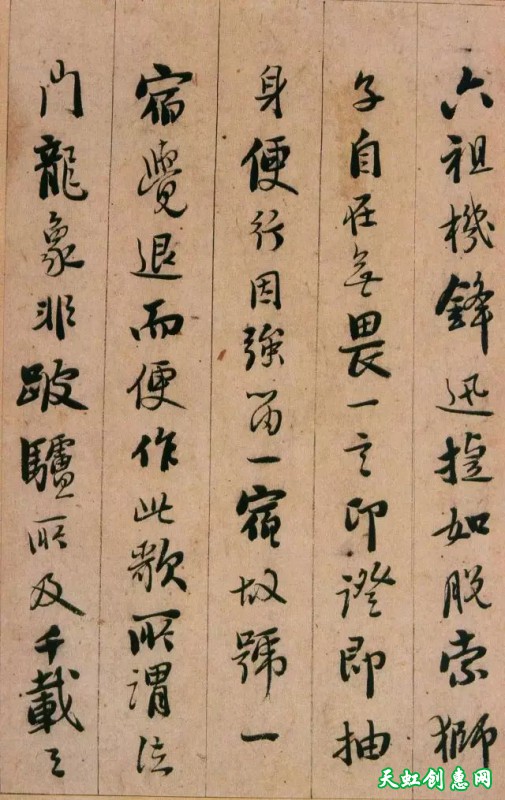 六祖機鋒迅捷如脱索獅
子自在無畏一言印證即抽
身便行因強留一宿故號一
宿覺退而便作此歌所謂法
門龍象非跛驢所及千載之
天虹创惠网